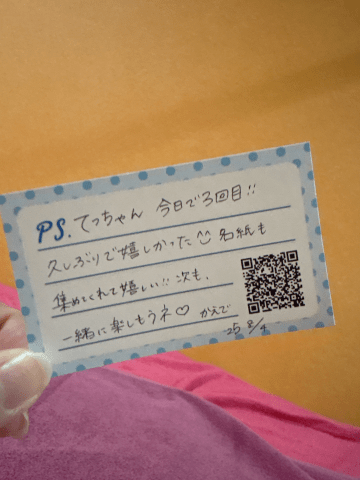 PS. てっちゃん 今日で3回目!!
久しぶりで嬉しかった^^ 名紙も
集めてくれて嬉しい!! 次も、
一緒に楽しもうネ♡ かえで
25 8/4